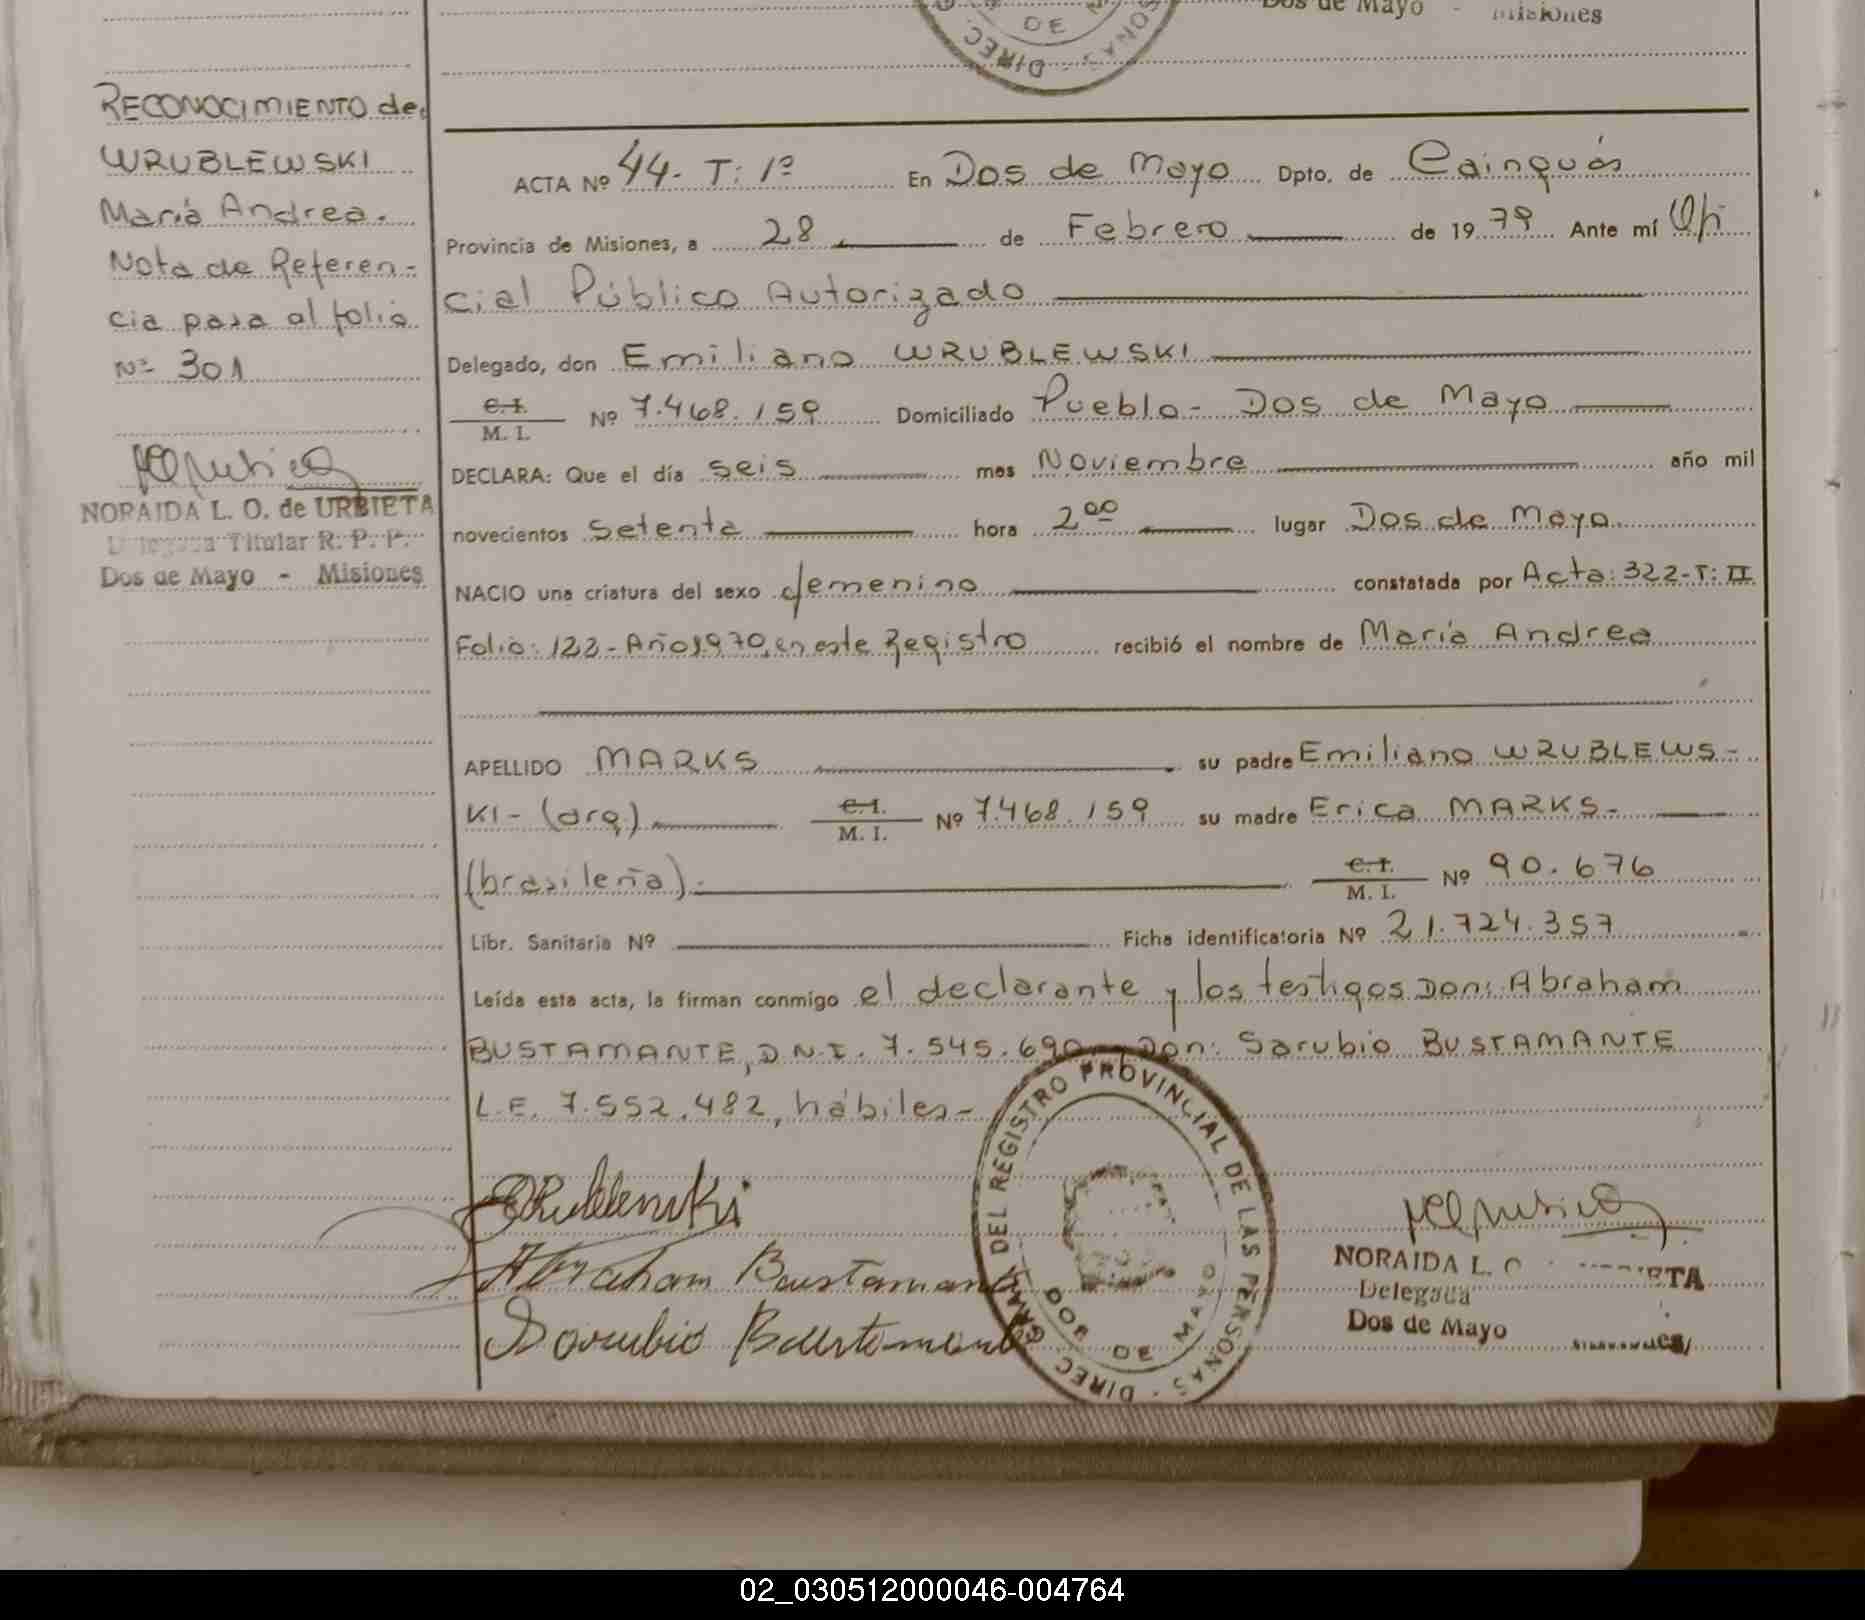 Dos de Mayo - Misiones
DIREC DE PERSONAS
RECONOCIMIENTO de
WRUBLEWSKI
María Andrea.
Nota de Referen-
cia pasa al folio
Nº 301
NORAIDA L. O. de URBIETA
Delegada Titular R. P. P.
Dos de Mayo - Misiones
ACTA Nº 44- T: 1º En Dos de Mayo Dpto. de Cainguás
Provincia de Misiones, a 28 de Febrero de 1979 Ante mí Ofi
cial Público Autorizado
Delegado, don Emiliano WRUBLEWSKI
C.I. / M. I. Nº 7.468.159 Domiciliado Pueblo- Dos de Mayo
DECLARA: Que el día seis mes Noviembre año mil
novecientos setenta hora 2 00 lugar Dos de Mayo
NACIO una criatura del sexo femenino constatada por Acta: 322-T: II
Folio: 122-Año 1970, en este Registro recibió el nombre de María Andrea
APELLIDO MARKS su padre Emiliano WRUBLEWS-
KI- (arg) C.I. / M. I. Nº 7.468.159 su madre Erica MARKS-
(brasileña). C.I. / M. I. Nº 90.676
Libr. Sanitaria Nº Ficha identificatoria Nº 21.724.357
Leída esta acta, la firman conmigo el declarante y los testigos Don: Abraham
BUSTAMANTE, D.N.I. 7.545.690 Don: Sarubio BUSTAMANTE
L.E. 7.552.482, hábiles-
EWrublewski
Abraham Bustamante
Sarubio Bustamante
DIREC GRAL DEL REGISTRO PROVINCIAL DE LAS PERSONAS
DOS DE MAYO
NORAIDA L. O
Delegada
Dos de Mayo
02_030512000046-004764